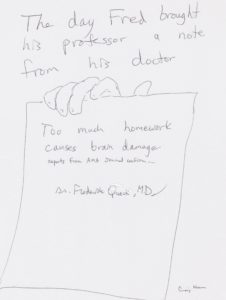 The day Fred brought
his professor a note
from his doctor
Too much homework
causes brain damage
Dr. Frederick Quack, MD